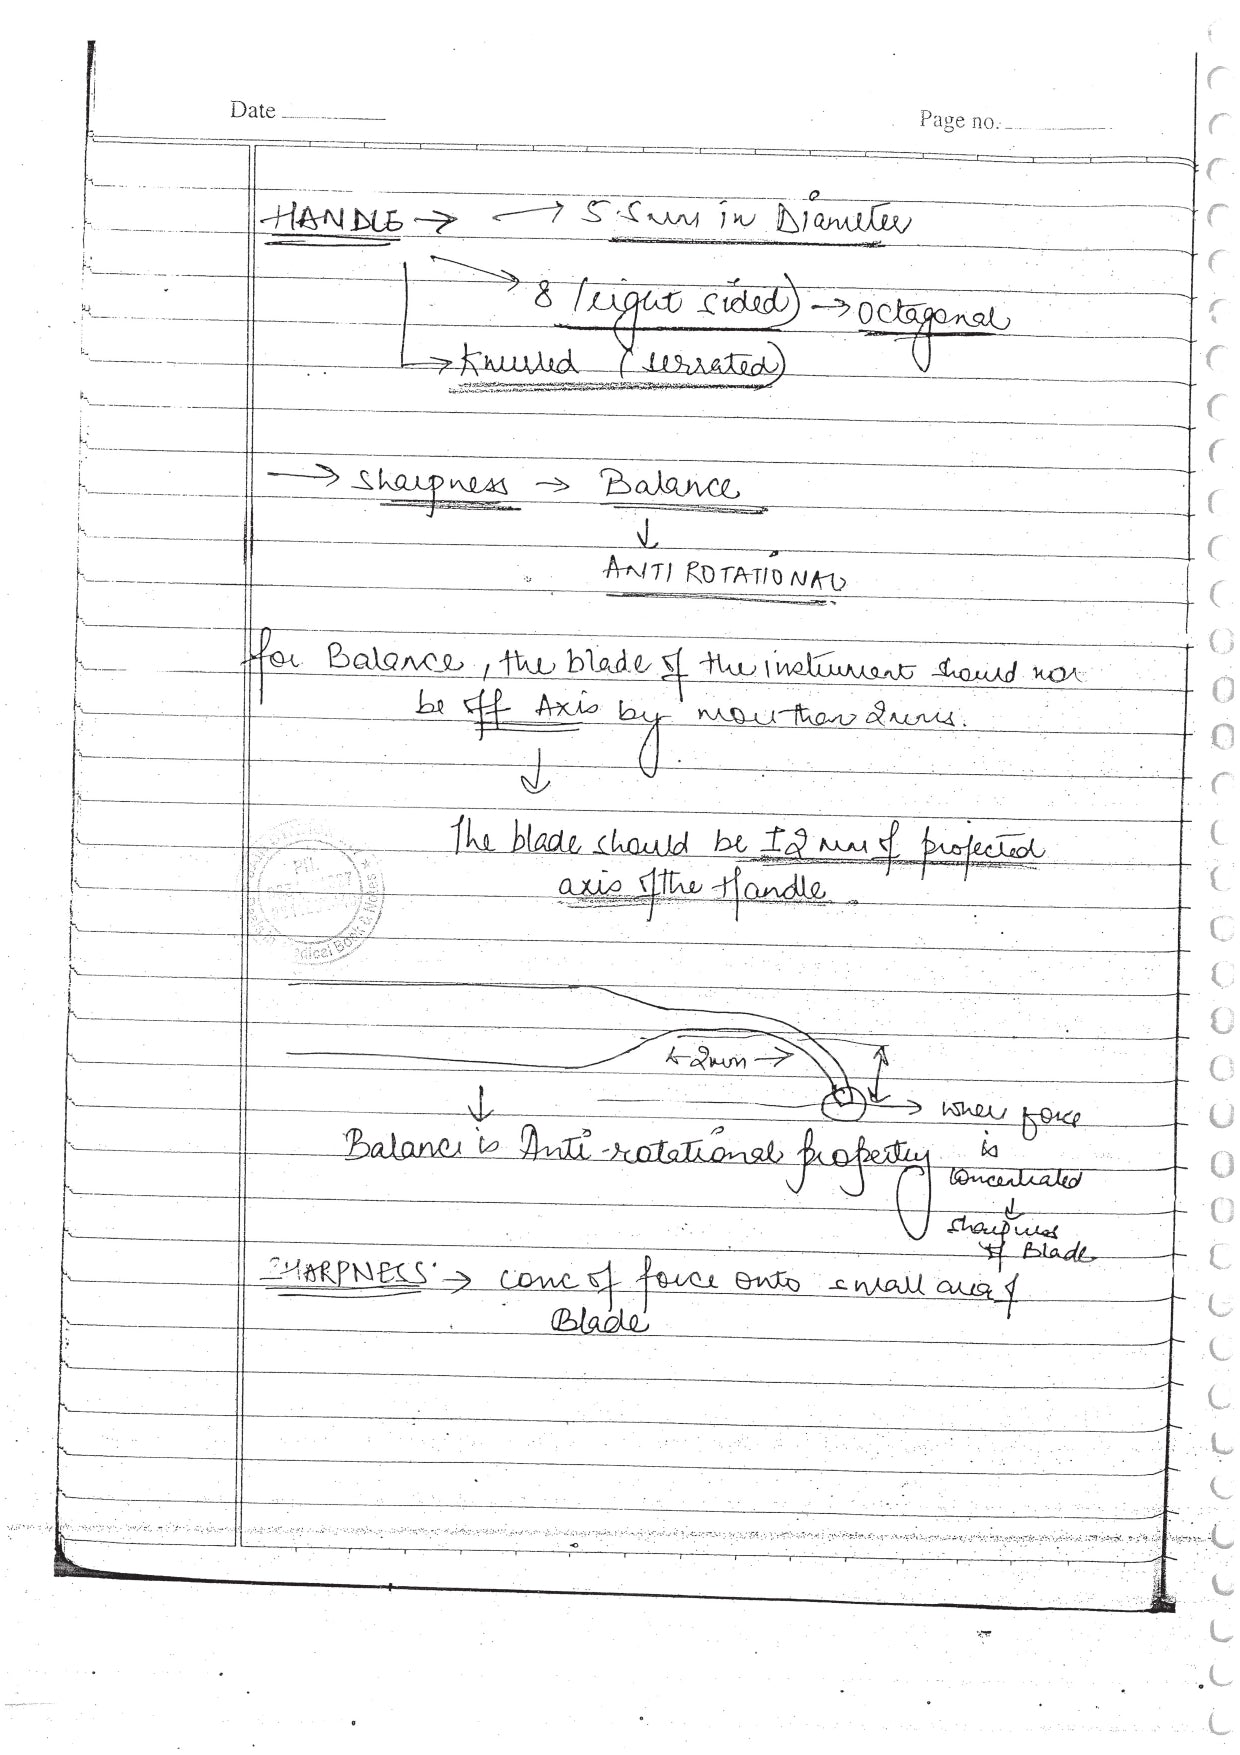 Date
Page no.
HANDLE → → 5.5mm in Diameter
→ 8 (eight sided) → Octagonal
→ Knurled (serrated)
→ Sharpness → Balance
↓
ANTI ROTATIONAL
for Balance, the blade of the instrument should not
be off Axis by more than 2mms.
↓
The blade should be ±2 mm of projected
axis of the Handle.
← 2mm →
→ when force
is
concentrated
↓
sharpness
of Blade
↓
Balance is Anti-rotational property
SHARPNESS → conc of force onto small area of
Blade